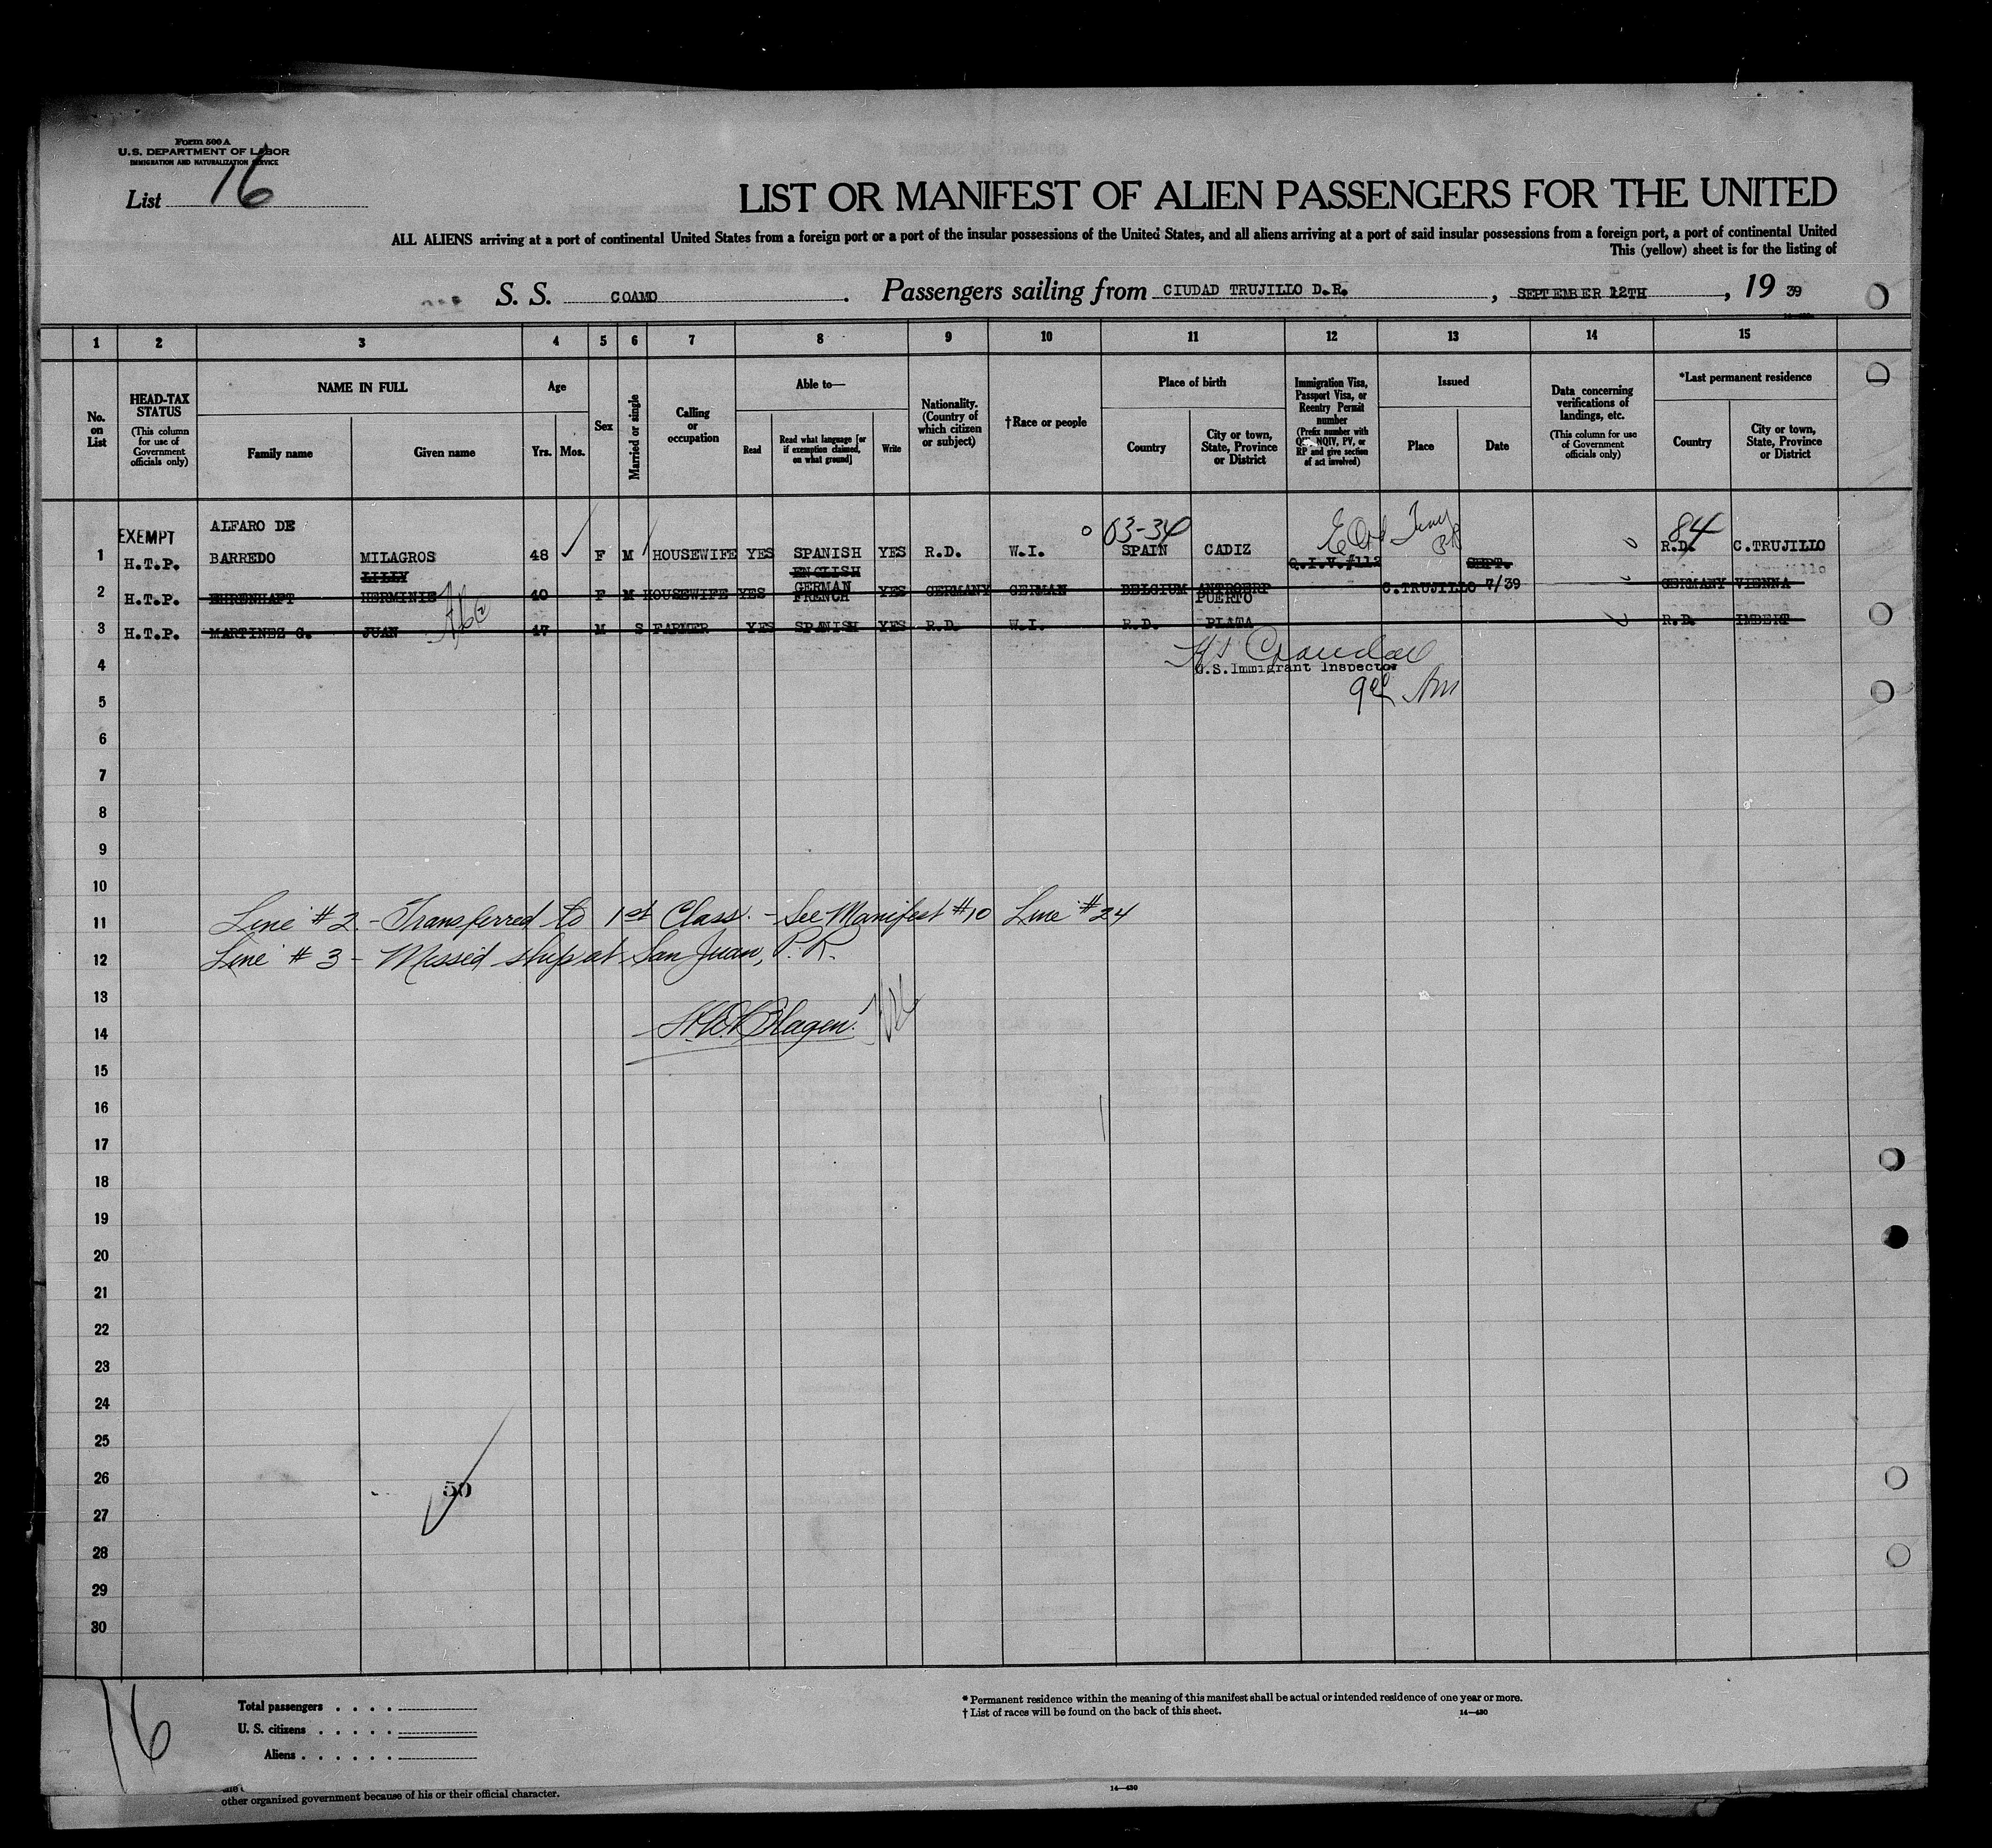 Form 500 A
U.S. DEPARTMENT OF LABOR
IMMIGRATION AND NATURALIZATION SERVICE
List 16
LIST OR MANIFEST OF ALIEN PASSENGERS FOR THE UNITED
ALL ALIENS arriving at a port of continental United States from a foreign port or a port of the insular possessions of the United States, and all aliens arriving at a port of said insular possessions from a foreign port, a port of continental United
This (yellow) sheet is for the listing of
S. S. COAMO. Passengers sailing from CIUDAD TRUJILLO D.R., SEPTEMBER 12TH, 19 39
1 2 3 4 5 6 7 8 9 10 11 12 13 14 15
No. on List
HEAD-TAX STATUS
(This column for use of Government officials only)
NAME IN FULL
Family name
Given name
Age
Yrs. Mos.
Sex
Married or single
Calling or occupation
Able to—
Read
Read what language [or if exemption claimed, on what ground]
Write
Nationality. (Country of which citizen or subject)
†Race or people
Place of birth
Country
City or town, State, Province or District
Immigration Visa, Passport Visa, or Reentry Permit number
(Prefix number with QIV, NQIV, PV, or RP and give section of act involved)
Issued
Place
Date
Data concerning verifications of landings, etc.
(This column for use of Government officials only)
*Last permanent residence
Country
City or town, State, Province or District
EXEMPT ALFARO DE 03-34 84
1 H.T.P. BARREDO MILAGROS 48 F M HOUSEWIFE YES SPANISH YES R.D. W.I. SPAIN CADIZ R.D. C.TRUJILLO
LILLY ENGLISH Q.I.V.#112 SEPT.
2 H.T.P. EHRENHAFT HERMINIE 40 F M HOUSEWIFE YES GERMAN FRENCH YES GERMANY GERMAN BELGIUM ANTWERP C.TRUJILLO 7/39 GERMANY VIENNA
3 H.T.P. MARTINEZ G. JUAN 47 M S FARMER YES SPANISH YES R.D. W.I. R.D. PUERTO PLATA R.D. IMBERT
4
U.S.Immigrant Inspector
5
6
7
8
9
10
11 Line #2 - Transferred to 1st Class. - See Manifest #10 Line #24
12 Line #3 - Missed ship at San Juan, P.R.
13
14
15
16
17
18
19
20
21
22
23
24
25
26
50
27
28
29
30
16
Total passengers
U. S. citizens
Aliens
* Permanent residence within the meaning of this manifest shall be actual or intended residence of one year or more.
† List of races will be found on the back of this sheet.
14—430
other organized government because of his or their official character.
14—430